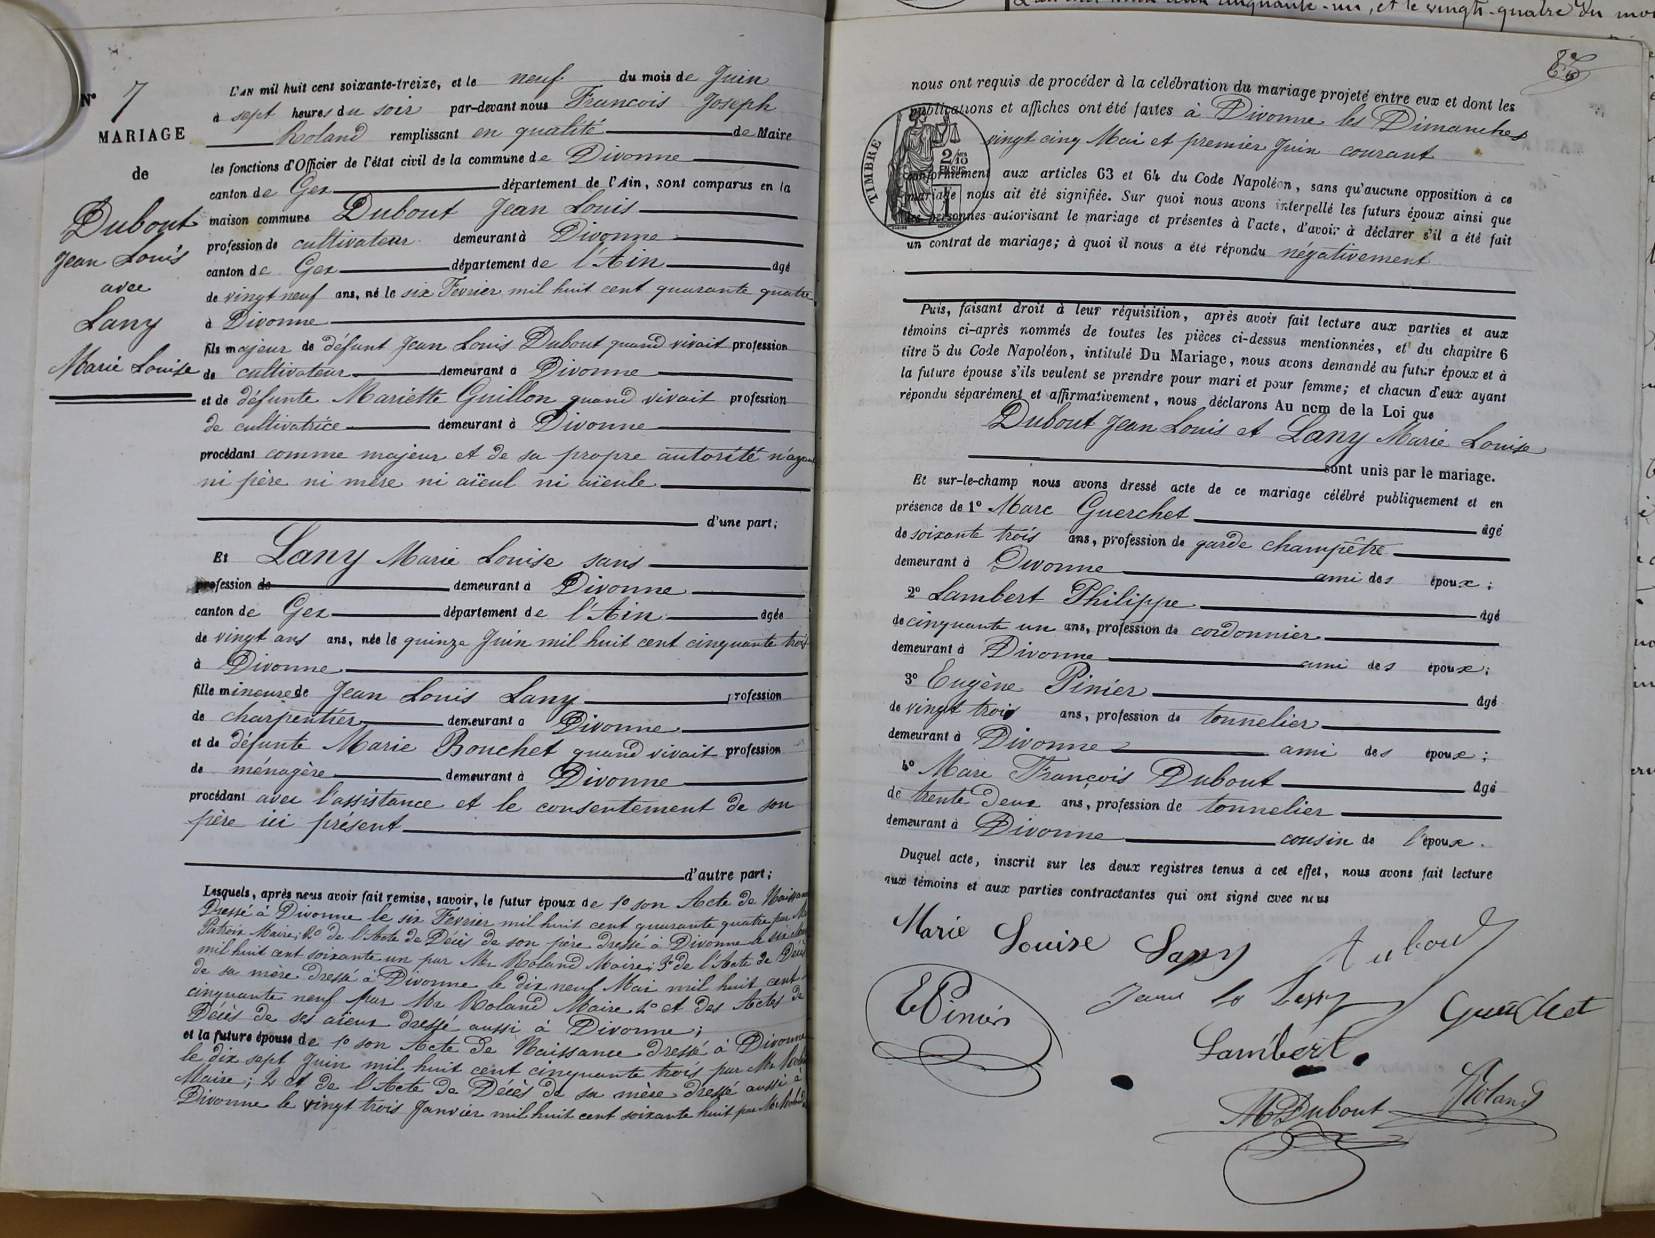 N° 7
MARIAGE
de
Dubout
Jean Louis
avec
Lany
Marie Louise
L'AN mil huit cent soixante-treize, et le neuf du mois de Juin
à sept heures du soir par-devant nous François Joseph
Roland remplissant en qualité de Maire
les fonctions d'Officier de l'état civil de la commune de Divonne
canton de Gex département de l'Ain, sont comparus en la
maison commune Dubout Jean Louis
profession de cultivateur demeurant à Divonne
canton de Gex département de l'Ain âgé
de vingt neuf ans, né le six Fevrier mil huit cent quarante quatre
à Divonne
fils majeur de défunt Jean Louis Dubout quand vivait profession
de cultivateur demeurant à Divonne
et de défunte Mariette Guillon quand vivait profession
de cultivatrice demeurant à Divonne
procédant comme majeur et de sa propre autorité n'ayant
ni père ni mère ni aïeul ni aïeule
d'une part;
Et Lany Marie Louise sans
profession de demeurant à Divonne
canton de Gex département de l'Ain âgée
de vingt ans ans, née le quinze Juin mil huit cent cinquante trois
à Divonne
fille mineure de Jean Louis Lany profession
de charpentier demeurant à Divonne
et de défunte Marie Bouchet quand vivait profession
de ménagère demeurant à Divonne
procédant avec l'assistance et le consentement de son
père ici présent
d'autre part;
Lesquels, après nous avoir fait remise, savoir, le futur époux de 1° son Acte de Naissance
Dressé à Divonne le six Fevrier mil huit cent quarante quatre par Mr
Maire; 2° de l'Acte de Décès de son père dressé à Divonne le
mil huit cent soixante un par Mr Roland Maire; 3° de l'Acte de Décès
de sa mère dressé à Divonne le dix neuf Mai mil huit cent
cinquante neuf par Mr Roland Maire 4° et des Actes de
Décès de ses aïeux dressé aussi à Divonne;
et la future épouse de 1° son Acte de Naissance dressé à Divonne
le dix sept Juin mil huit cent cinquante trois par Mr
Maire; 2° et de l'Acte de Décès de sa mère dressé aussi à
Divonne le vingt trois Janvier mil huit cent soixante huit par Mr
nous ont requis de procéder à la célébration du mariage projeté entre eux et dont les
publications et affiches ont été faites à Divonne les Dimanches
vingt cinq Mai et premier Juin courant
TIMBRE
2/10 EN SUS
conformément aux articles 63 et 64 du Code Napoléon, sans qu'aucune opposition à ce
mariage nous ait été signifiée. Sur quoi nous avons interpellé les futurs époux ainsi que
les personnes autorisant le mariage et présentes à l'acte, d'avoir à déclarer s'il a été fait
un contrat de mariage; à quoi il nous a été répondu négativement
Puis, faisant droit à leur réquisition, après avoir fait lecture aux parties et aux
témoins ci-après nommés de toutes les pièces ci-dessus mentionnées, et du chapitre 6
titre 5 du Code Napoléon, intitulé Du Mariage, nous avons demandé au futur époux et à
la future épouse s'ils veulent se prendre pour mari et pour femme; et chacun d'eux ayant
répondu séparément et affirmativement, nous déclarons Au nom de la Loi que
Dubout Jean Louis et Lany Marie Louise
sont unis par le mariage.
Et sur-le-champ nous avons dressé acte de ce mariage célébré publiquement et en
présence de 1° Marc Guerchet âgé
de soixante trois ans, profession de garde champêtre
demeurant à Divonne ami des époux;
2° Lambert Philippe âgé
de cinquante un ans, profession de cordonnier
demeurant à Divonne ami des époux;
3° Eugène Pinier âgé
de vingt trois ans, profession de tonnelier
demeurant à Divonne ami des époux;
4° Marc François Dubout âgé
de trente deux ans, profession de tonnelier
demeurant à Divonne cousin de l'époux.
Duquel acte, inscrit sur les deux registres tenus à cet effet, nous avons fait lecture
aux témoins et aux parties contractantes qui ont signé avec nous
Marie Louise Lany Dubout
E Pinier Guerchet
Lambert
M Dubout Roland